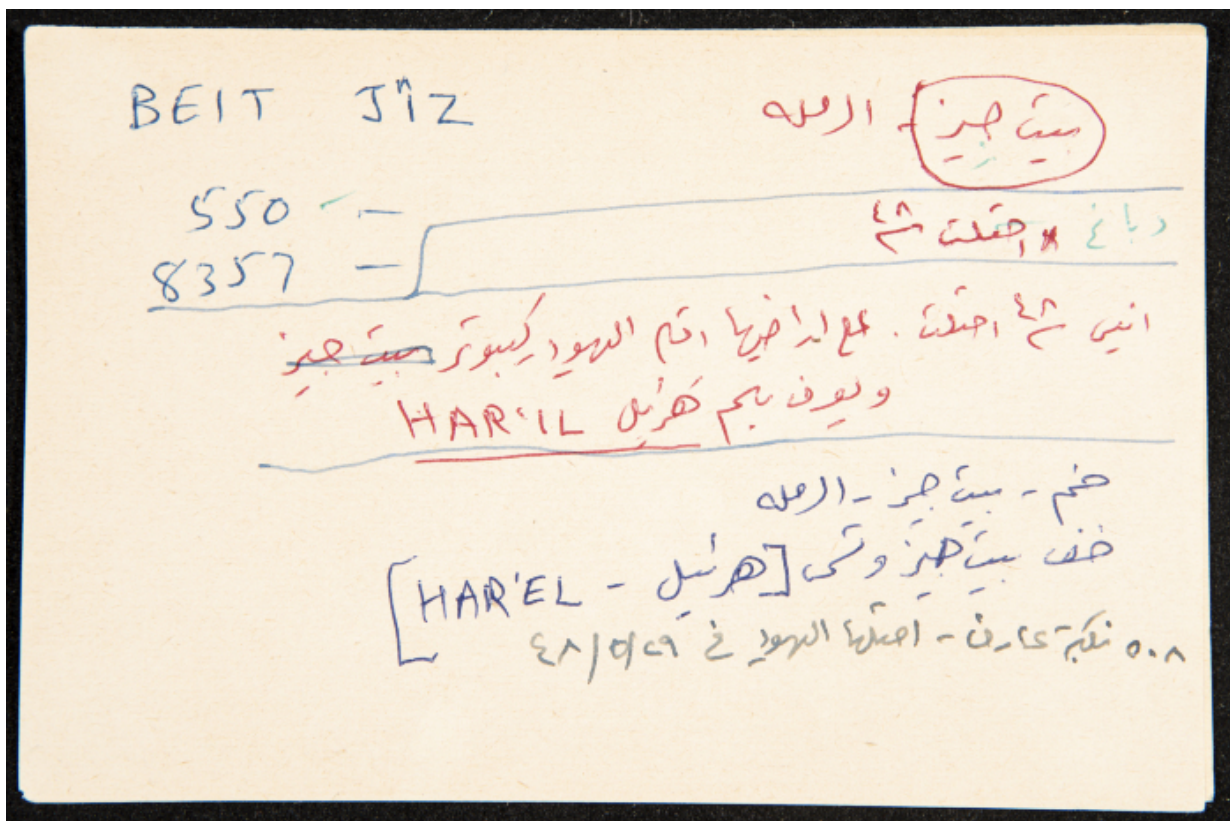 BEIT JÎZ بيت جيز - الرمله
550 -
8357 -
دباغ * احتلت ٤٨
انيس ٤٨ احتلت. على اراضيها اقام اليهود كيبوتز بيت جيز
ويعرف باسم هرئيل HAR'IL
بيت جيز - الرمله
بيت جيز وتسمى [هرئيل - HAR'EL]
٥٠٨ نكبة عارف - احتلها اليهود في ٢٩/٥/٤٨